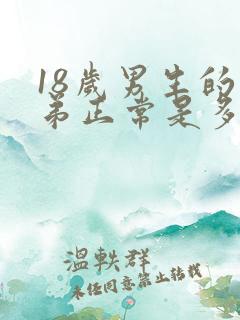 18歲男生的
弟正常是多
溫軼群
未经同意禁止转载